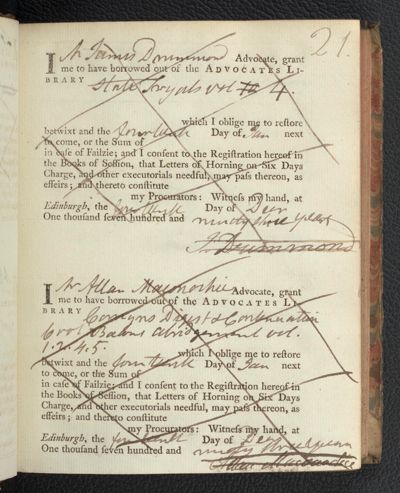 21.
I Mr James Drummond Advocate, grant
me to have borrowed out of the ADVOCATES LI-
BRARY State Tryals vol 4.
which I oblige me to restore
betwixt and the fourteenth Day of Jan next
to come, or the Sum of
in case of Failzie; and I consent to the Registration hereof in
the Books of Session, that Letters of Horning on Six Days
Charge, and other executorials needful, may pass thereon, as
effeirs; and thereto constitute
my Procurators: Witness my hand, at
Edinburgh, the fourteenth Day of Decr
One thousand seven hundred and ninety three years
J. Drummond
I Mr Allan Maconochie Advocate, grant
me to have borrowed out of the ADVOCATES LI-
BRARY Comyns Digest & Continuation
6 vol Bacons abridgement vol.
1. 2. 4. 5. which I oblige me to restore
betwixt and the fourteenth Day of Jan next
to come, or the Sum of
in case of Failzie; and I consent to the Registration hereof in
the Books of Session, that Letters of Horning on Six Days
Charge, and other executorials needful, may pass thereon, as
effeirs; and thereto constitute
my Procurators: Witness my hand, at
Edinburgh, the fourteenth Day of Decr
One thousand seven hundred and ninety three years
Allan Maconochie